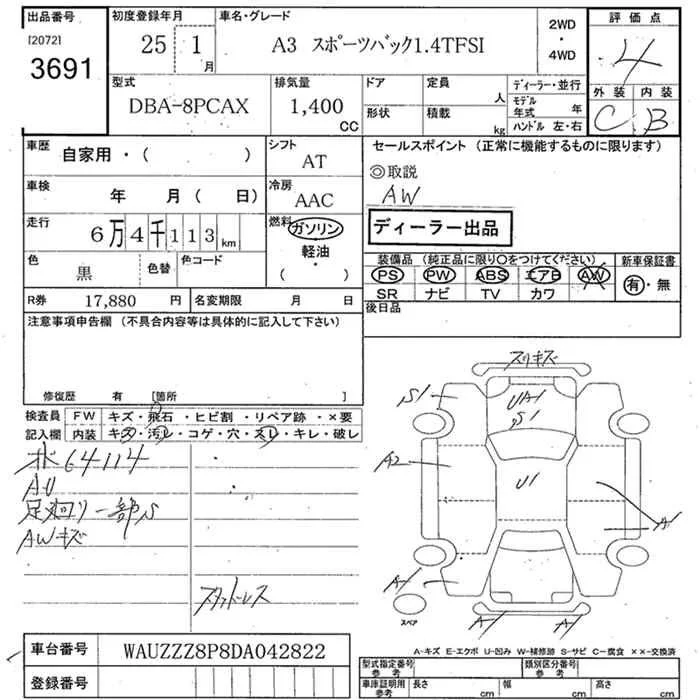 出品番号 初度登録年月 車名・グレード 2WD ・ 4WD 評価点
[2072] 3691 25 1月 A3 スポーツバック1.4TFSI 4
外装 内装
C B
型式 排気量 ドア 定員 人 ディーラー・並行
DBA-8PCAX 1,400 CC 形状 積載 kg モデル年式 年
ハンドル 左・右
車歴 自家用・( ) シフト AT
セールスポイント (正常に機能するものに限ります)
◎取説
AW
ディーラー出品
車検 年 月( 日) 冷房 AAC
走行 6万4千113km 燃料 ガソリン・軽油・( )
色 黒 色替 色コード
装備品 (純正品に限り○をつけてください) 新車保証書
PS PW ABS エアB AW 有・無
SR ナビ TV カワ
R券 17,880 円 名変期限 月 日
後日品
注意事項申告欄 (不具合内容等は具体的に記入して下さい)
修復歴 有 [箇所 ]
検査員 FW キズ・飛石・ヒビ割・リペア跡・×要
記入欄 内装 キズ・汚レ・コゲ・穴・スレ・キレ・破レ
64114
AU
足廻り一部S
AWキズ
スタッドレス
スリキズ
S1
UA1
S1
A2
U1
A1
A1
A1 A1
スペア
A-キズ E-エクボ U-凹み W-補修跡 S-サビ C-腐食 ××-交換済
車台番号 WAUZZZ8P8DA042822
登録番号
型式指定番号 参考 類別区分番号 参考
車庫証明用 参考 長さ cm 幅 cm 高さ cm